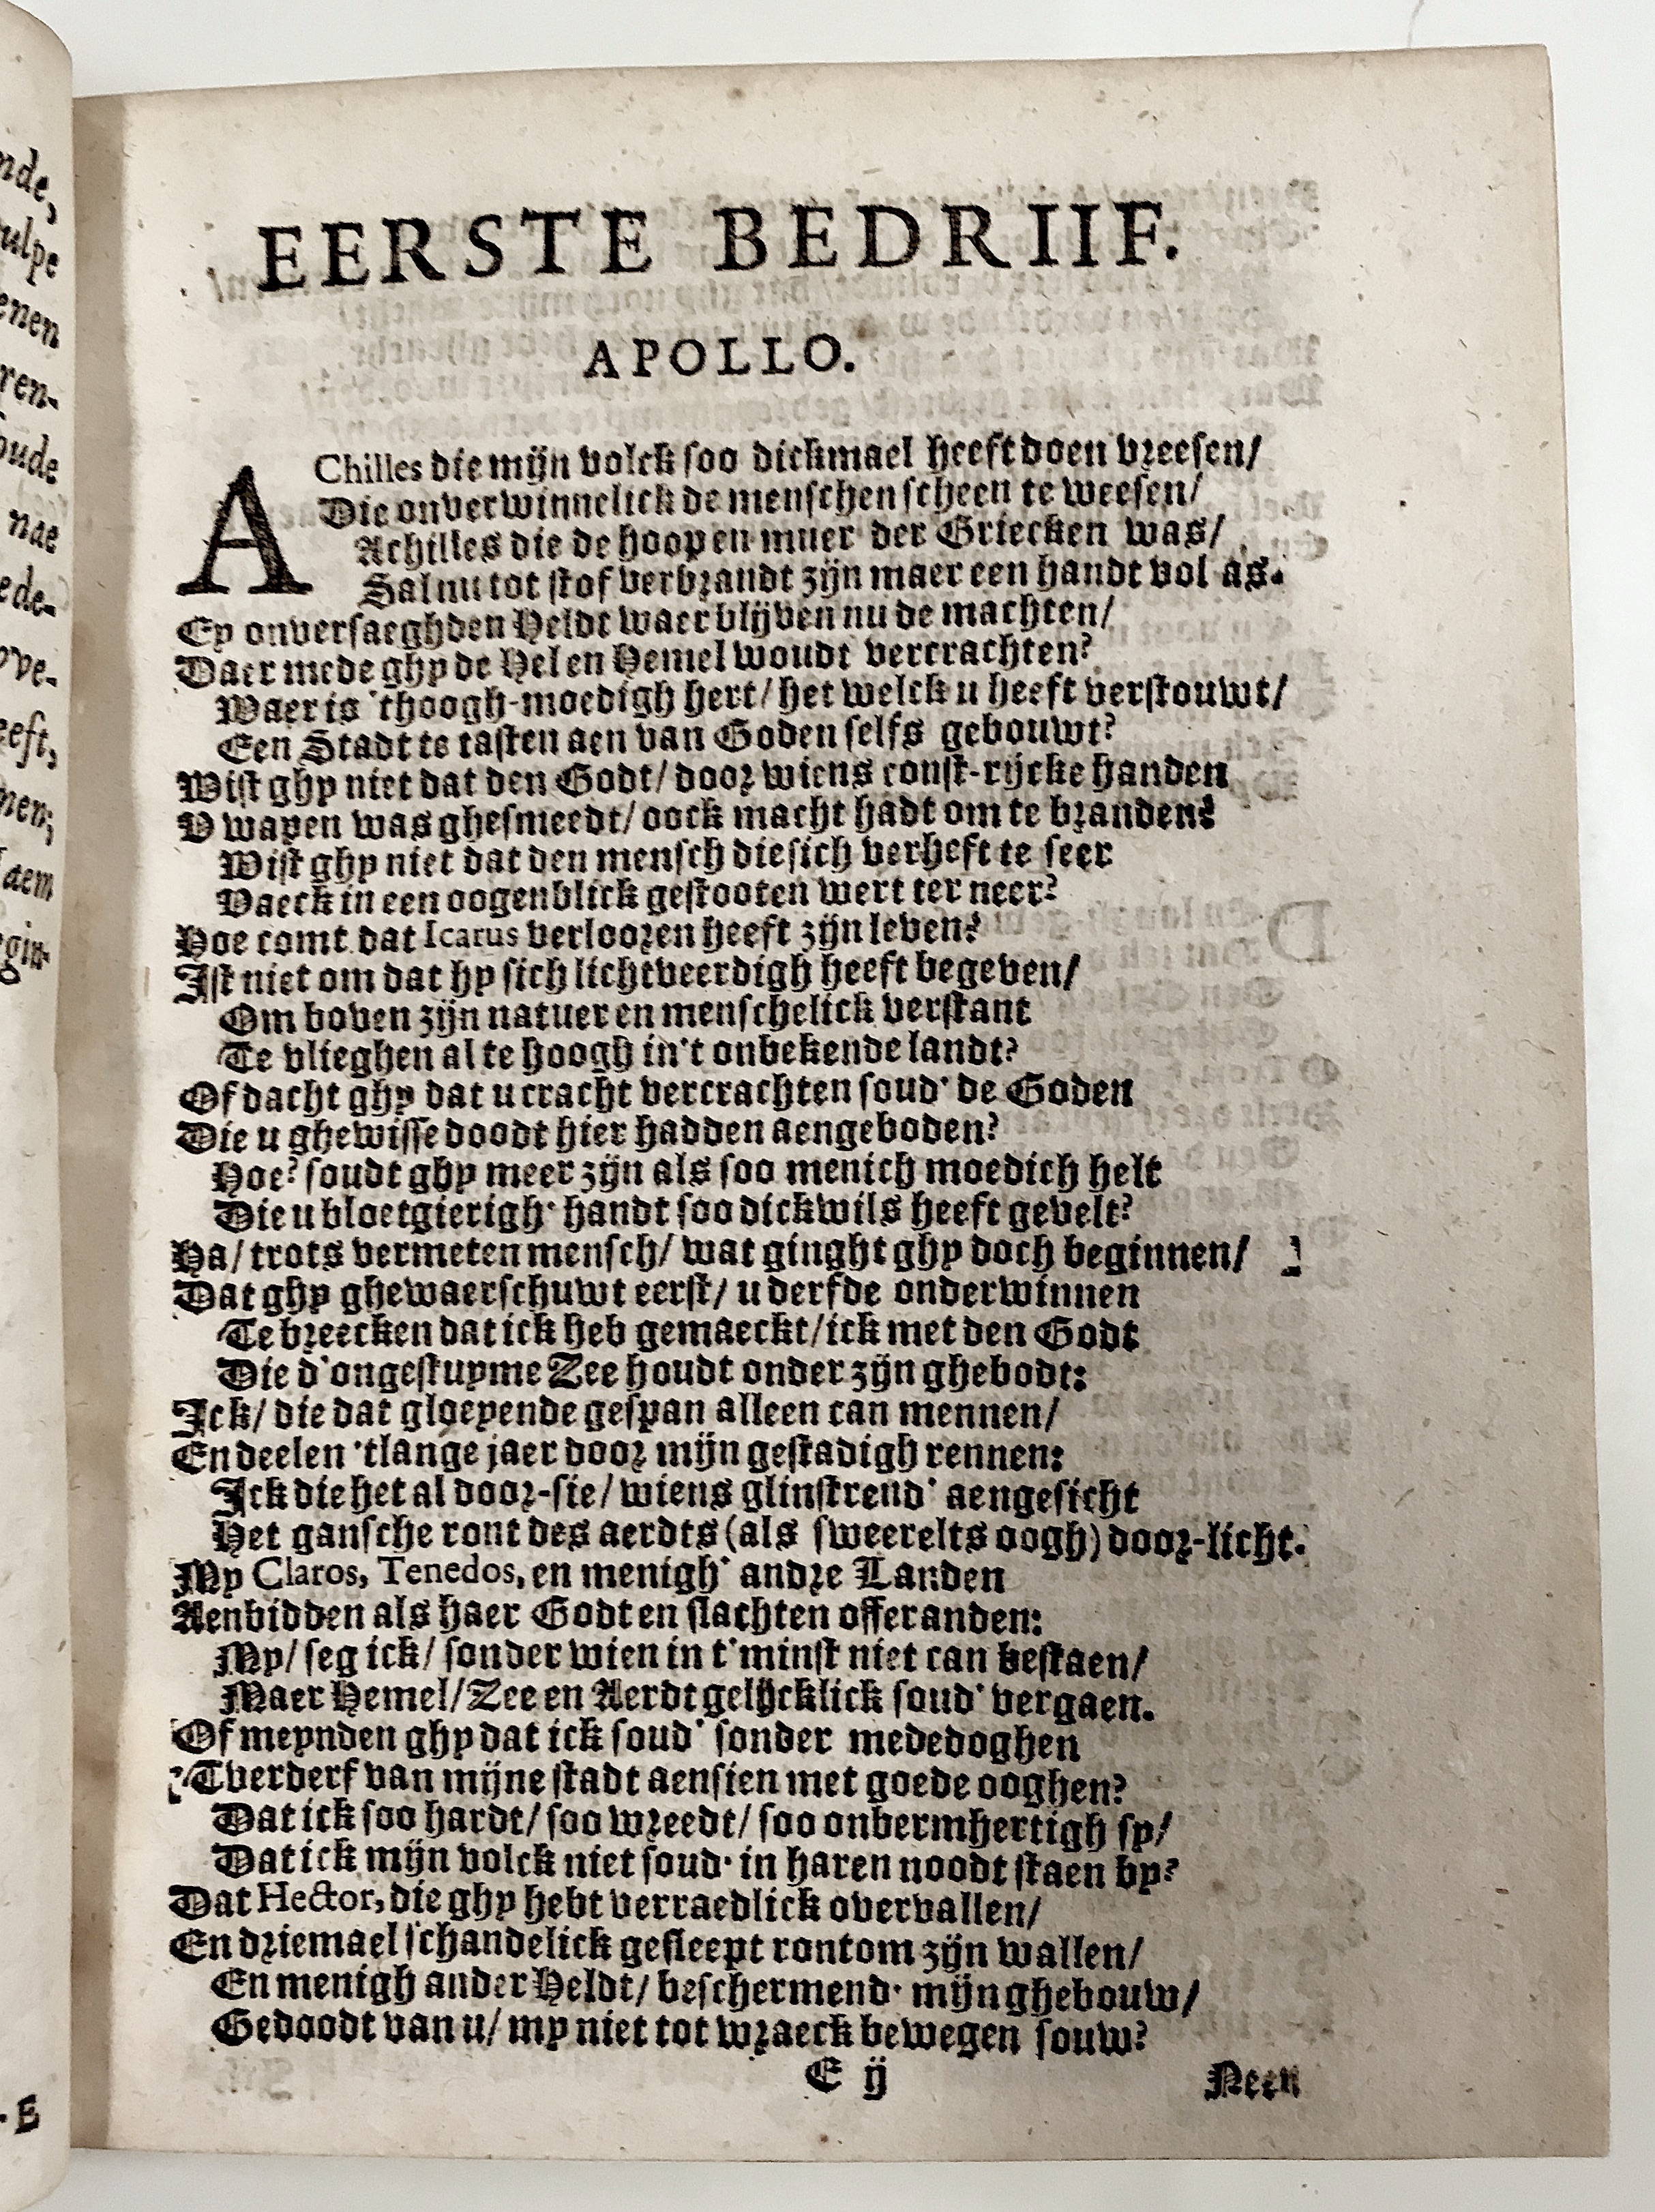 nde,
ulpe
enen
ren-
oude
nae
ede-
ve-
eeft,
nen;
daem
egin-
EERSTE BEDRIIF.
APOLLO.
AChilles die mijn volck soo dickmael heeft doen vreesen/
Die onverwinnelick de menschen scheen te weesen/
Achilles die de hoop en muer der Griecken was/
Sal nu tot stof verbrandt zijn maer een handt vol as.
Ey onversaeghden Heldt waer blijven nu de machten/
Daer mede ghy de Hel en Hemel woudt vercrachten?
Waer is 'thoogh-moedigh hert/ het welck u heeft verstouwt/
Een Stadt te tasten aen van Goden selfs gebouwt?
Wist ghy niet dat den Godt/ door wiens const-rijcke handen
V wapen was ghesmeedt/ oock macht hadt om te branden?
Wist ghy niet dat den mensch die sich verheft te seer
Vaeck in een oogenblick gestooten wert ter neer?
Hoe comt dat Icarus verlooren heeft zijn leven?
Ist niet om dat hy sich lichtveerdigh heeft begeven/
Om boven zijn natuer en menschelick verstant
Te vlieghen al te hoogh in't onbekende landt?
Of dacht ghy dat u cracht vercrachten soud' de Goden
Die u ghewisse doodt hier hadden aengeboden?
Hoe? soudt ghy meer zijn als soo menich moedich helt
Die u bloetgierigh' handt soo dickwils heeft gevelt?
Ha/ trots vermeten mensch/ wat ginght ghy doch beginnen/
Dat ghy ghewaerschuwt eerst/ u derfde onderwinnen
Te breecken dat ick heb gemaeckt/ ick met den Godt
Die d'ongestuyme Zee houdt onder zijn ghebodt:
Ick/ die dat gloeyende gespan alleen can mennen/
En deelen 'tlange jaer door mijn gestadigh rennen:
Ick die het al door-sie/ wiens glinstrend' aengesicht
Het gansche ront des aerdts (als sweerelts oogh) door-licht.
My Claros, Tenedos, en menigh' andre Landen
Aenbidden als haer Godt en slachten offeranden:
My/ seg ick/ sonder wien in t'minst niet can bestaen/
Maer Hemel/ Zee en Aerdt gelijcklick soud' vergaen.
Of meynden ghy dat ick soud' sonder mededoghen
'Tverderf van mijne stadt aensien met goede ooghen?
Dat ick soo hardt/ soo wreedt/ soo onbermhertigh sy/
Dat ick mijn volck niet soud' in haren noodt staen by?
Dat Hector, die ghy hebt verraedlick overvallen/
En driemael schandelick gesleept rontom zijn wallen/
En menigh ander Heldt/ beschermend' mijn ghebouw/
Gedoodt van u/ my niet tot wraeck bewegen souw?
E ij Neen